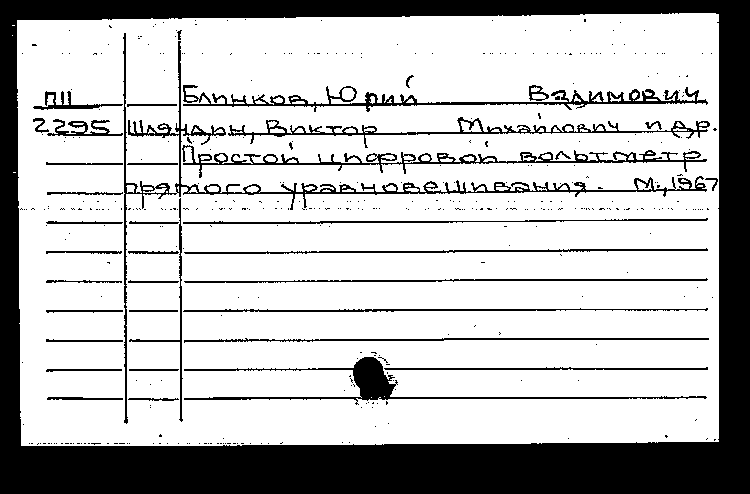 П11 Блинков, Юрий Вадимович
2295 Шляндин, Виктор Михайлович и др.
Простой цифровой вольтметр
прямого уравновешивания. М., 1967